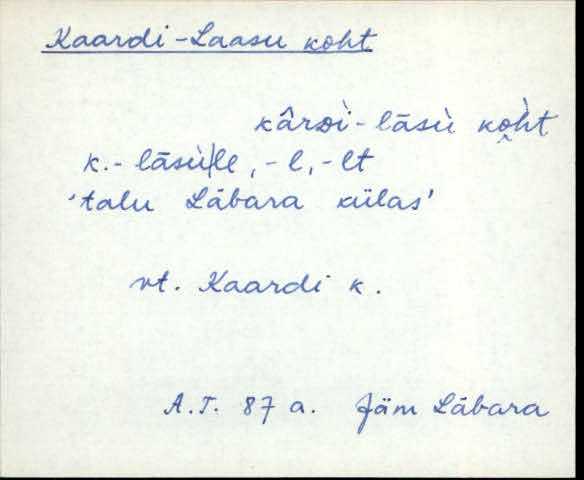 Kaardi-Laasu koht
kârdì-lāsù ko̭h̀t
k.-lāsù|le, -l, -lt
'talu Läbara külas'
vt. Kaardi k.
A.T. 87 a. Jäm Läbara